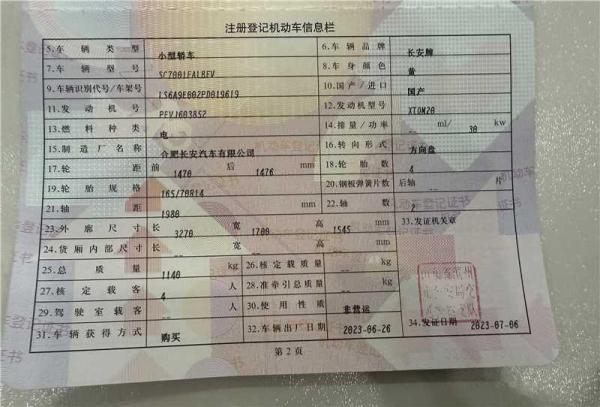 注册登记机动车信息栏
5.车辆类型 小型轿车 6.车辆品牌 长安牌
7.车辆型号 SC7001FALBEV 8.车身颜色 黄
9.车辆识别代号/车架号 LS6A9E002PD019619 10.国产/进口 国产
11.发动机号 PFVJ603852 12.发动机型号 XTDM20
13.燃料种类 电 14.排量/功率 -- ml/ 30 kw
15.制造厂名称 合肥长安汽车有限公司 16.转向形式 方向盘
17.轮距 前 1470 后 1476 mm 18.轮胎数 4
19.轮胎规格 165/70R14 20.钢板弹簧片数 后轴 -- 片
21.轴距 1980 mm 22.轴数 2
23.外廓尺寸 长 3270 宽 1700 高 1545 mm 33.发证机关章
24.货厢内部尺寸 长 -- 宽 -- 高 -- mm
25.总质量 1140 kg 26.核定载质量 -- kg
27.核定载客 4 人 28.准牵引总质量 -- kg
29.驾驶室载客 -- 人 30.使用性质 非营运
31.车辆获得方式 购买 32.车辆出厂日期 2023-06-26 34.发证日期 2023-07-06
第2页